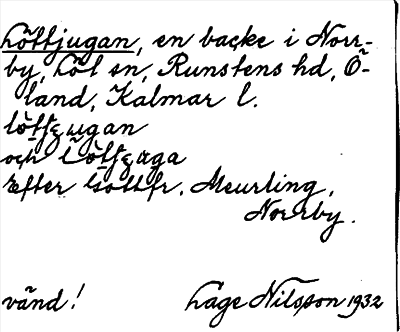 Löttjugan, en backe i Norr-
by, Löt sn, Runstens hd, Ö-
land, Kalmar l.
löt́ʃugan
och Löt́ʃuga
Efter Gottfr. Meurling,
Norrby.
vänd! Lage Nilsson 1932